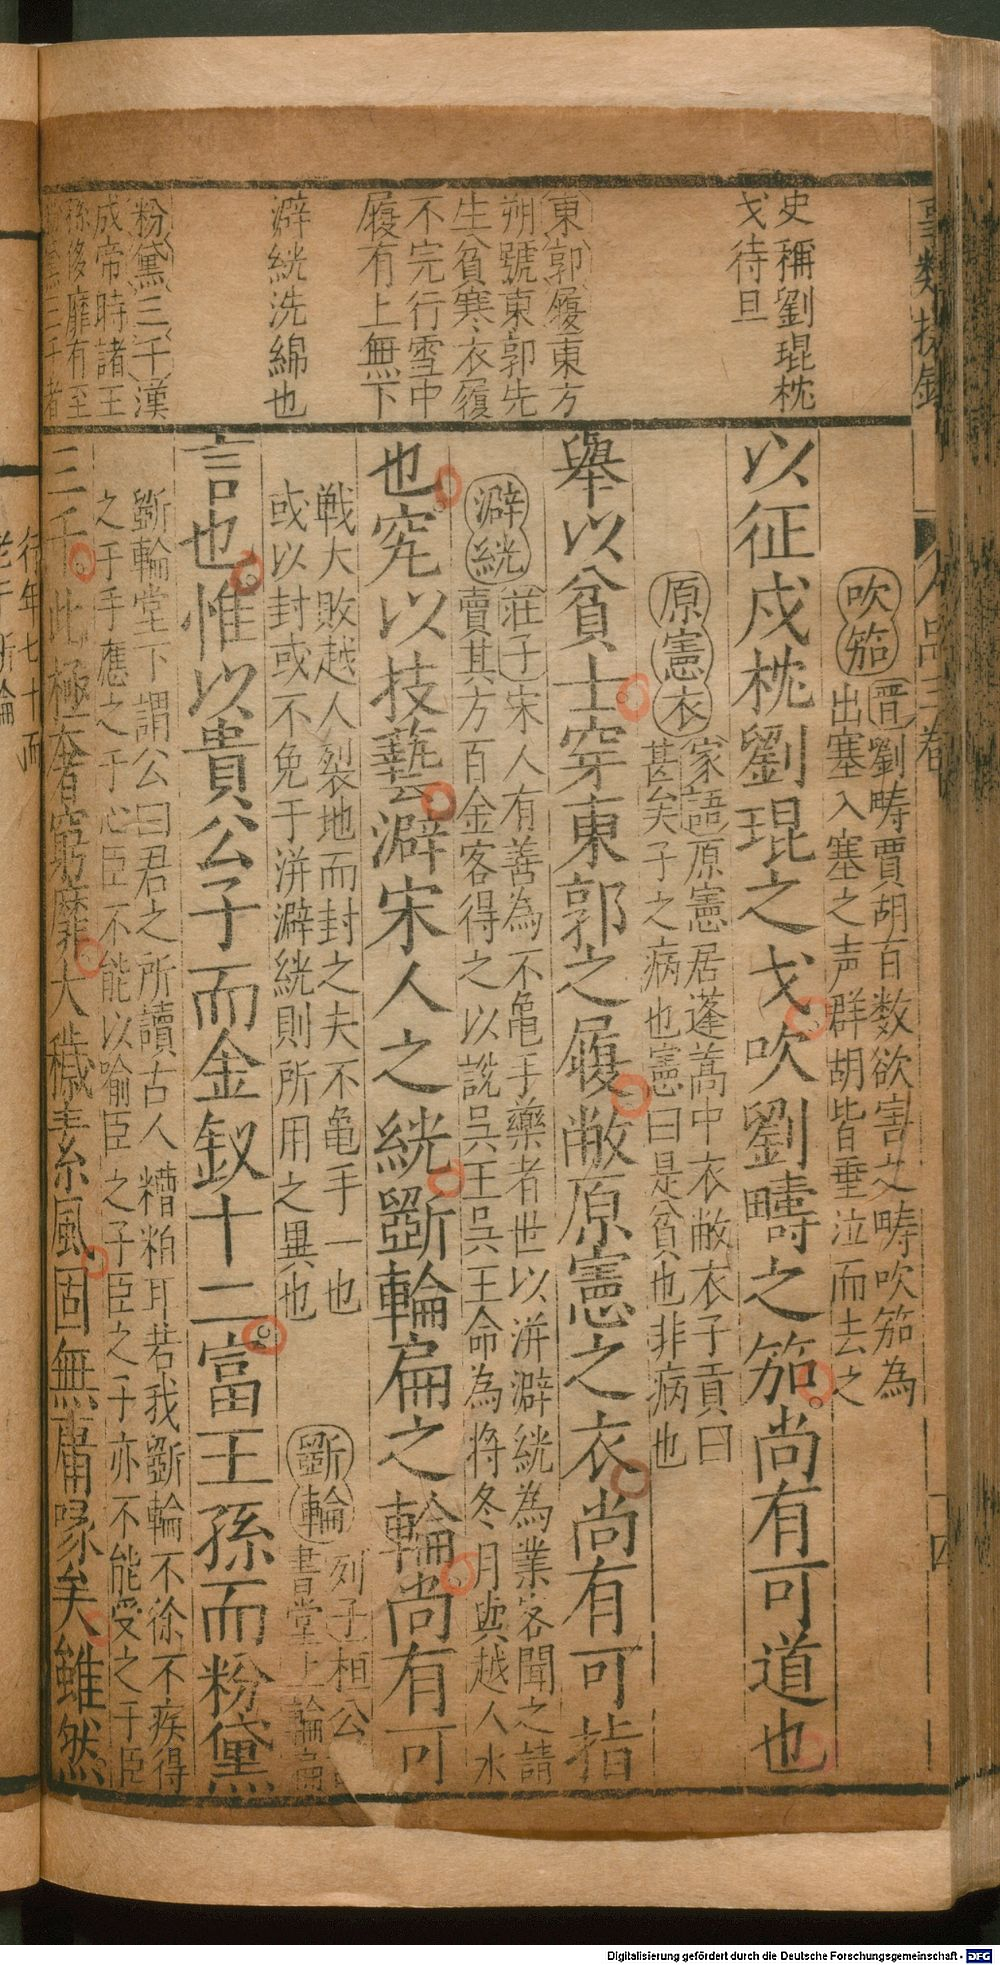 史稱劉琨枕
戈待旦
東郭履東方
朔號東郭先
生貧寒衣履
不完行雪中
履有上無下
澼絖洗綿也
粉黛三千漢
成帝時諸王
侈靡有至
三千者
吹笳 晋劉畴賈胡百数欲害之畴吹笳為
出塞入塞之声群胡皆垂泣而去之
以征戍枕劉琨之戈吹劉疇之笳尚有可道也
原憲衣 家語原憲居蓬蒿中衣敝衣子貢曰
甚矣子之病也憲曰是貧也非病也
舉以貧士穿東郭之履敝原憲之衣尚有可指
澼絖 莊子宋人有善為不亀手藥者世以洴澼絖為業客聞之請
賣其方百金客得之以説吳王吳王命為将冬月與越人水
也究以技藝澼宋人之絖斵輪扁之輪尚有可
戦大敗越人裂地而封之夫不亀手一也
或以封或不免于洴澼絖則所用之異也
斵輪 列子桓公
書堂上輪扁
言也惟以貴公子而金釵十二富王孫而粉黛
斵輪堂下謂公曰君之所讀古人糟粕耳若我斵輪不徐不疾得
之于手應之于心臣不能以喻臣之子臣之子亦不能受之于臣
三千此極奢窮靡大穢素風固無庸喙矣雖然
行年七十而
老于斵輪
人品三卷
十四
Digitalisierung gefördert durch die Deutsche Forschungsgemeinschaft - DFG